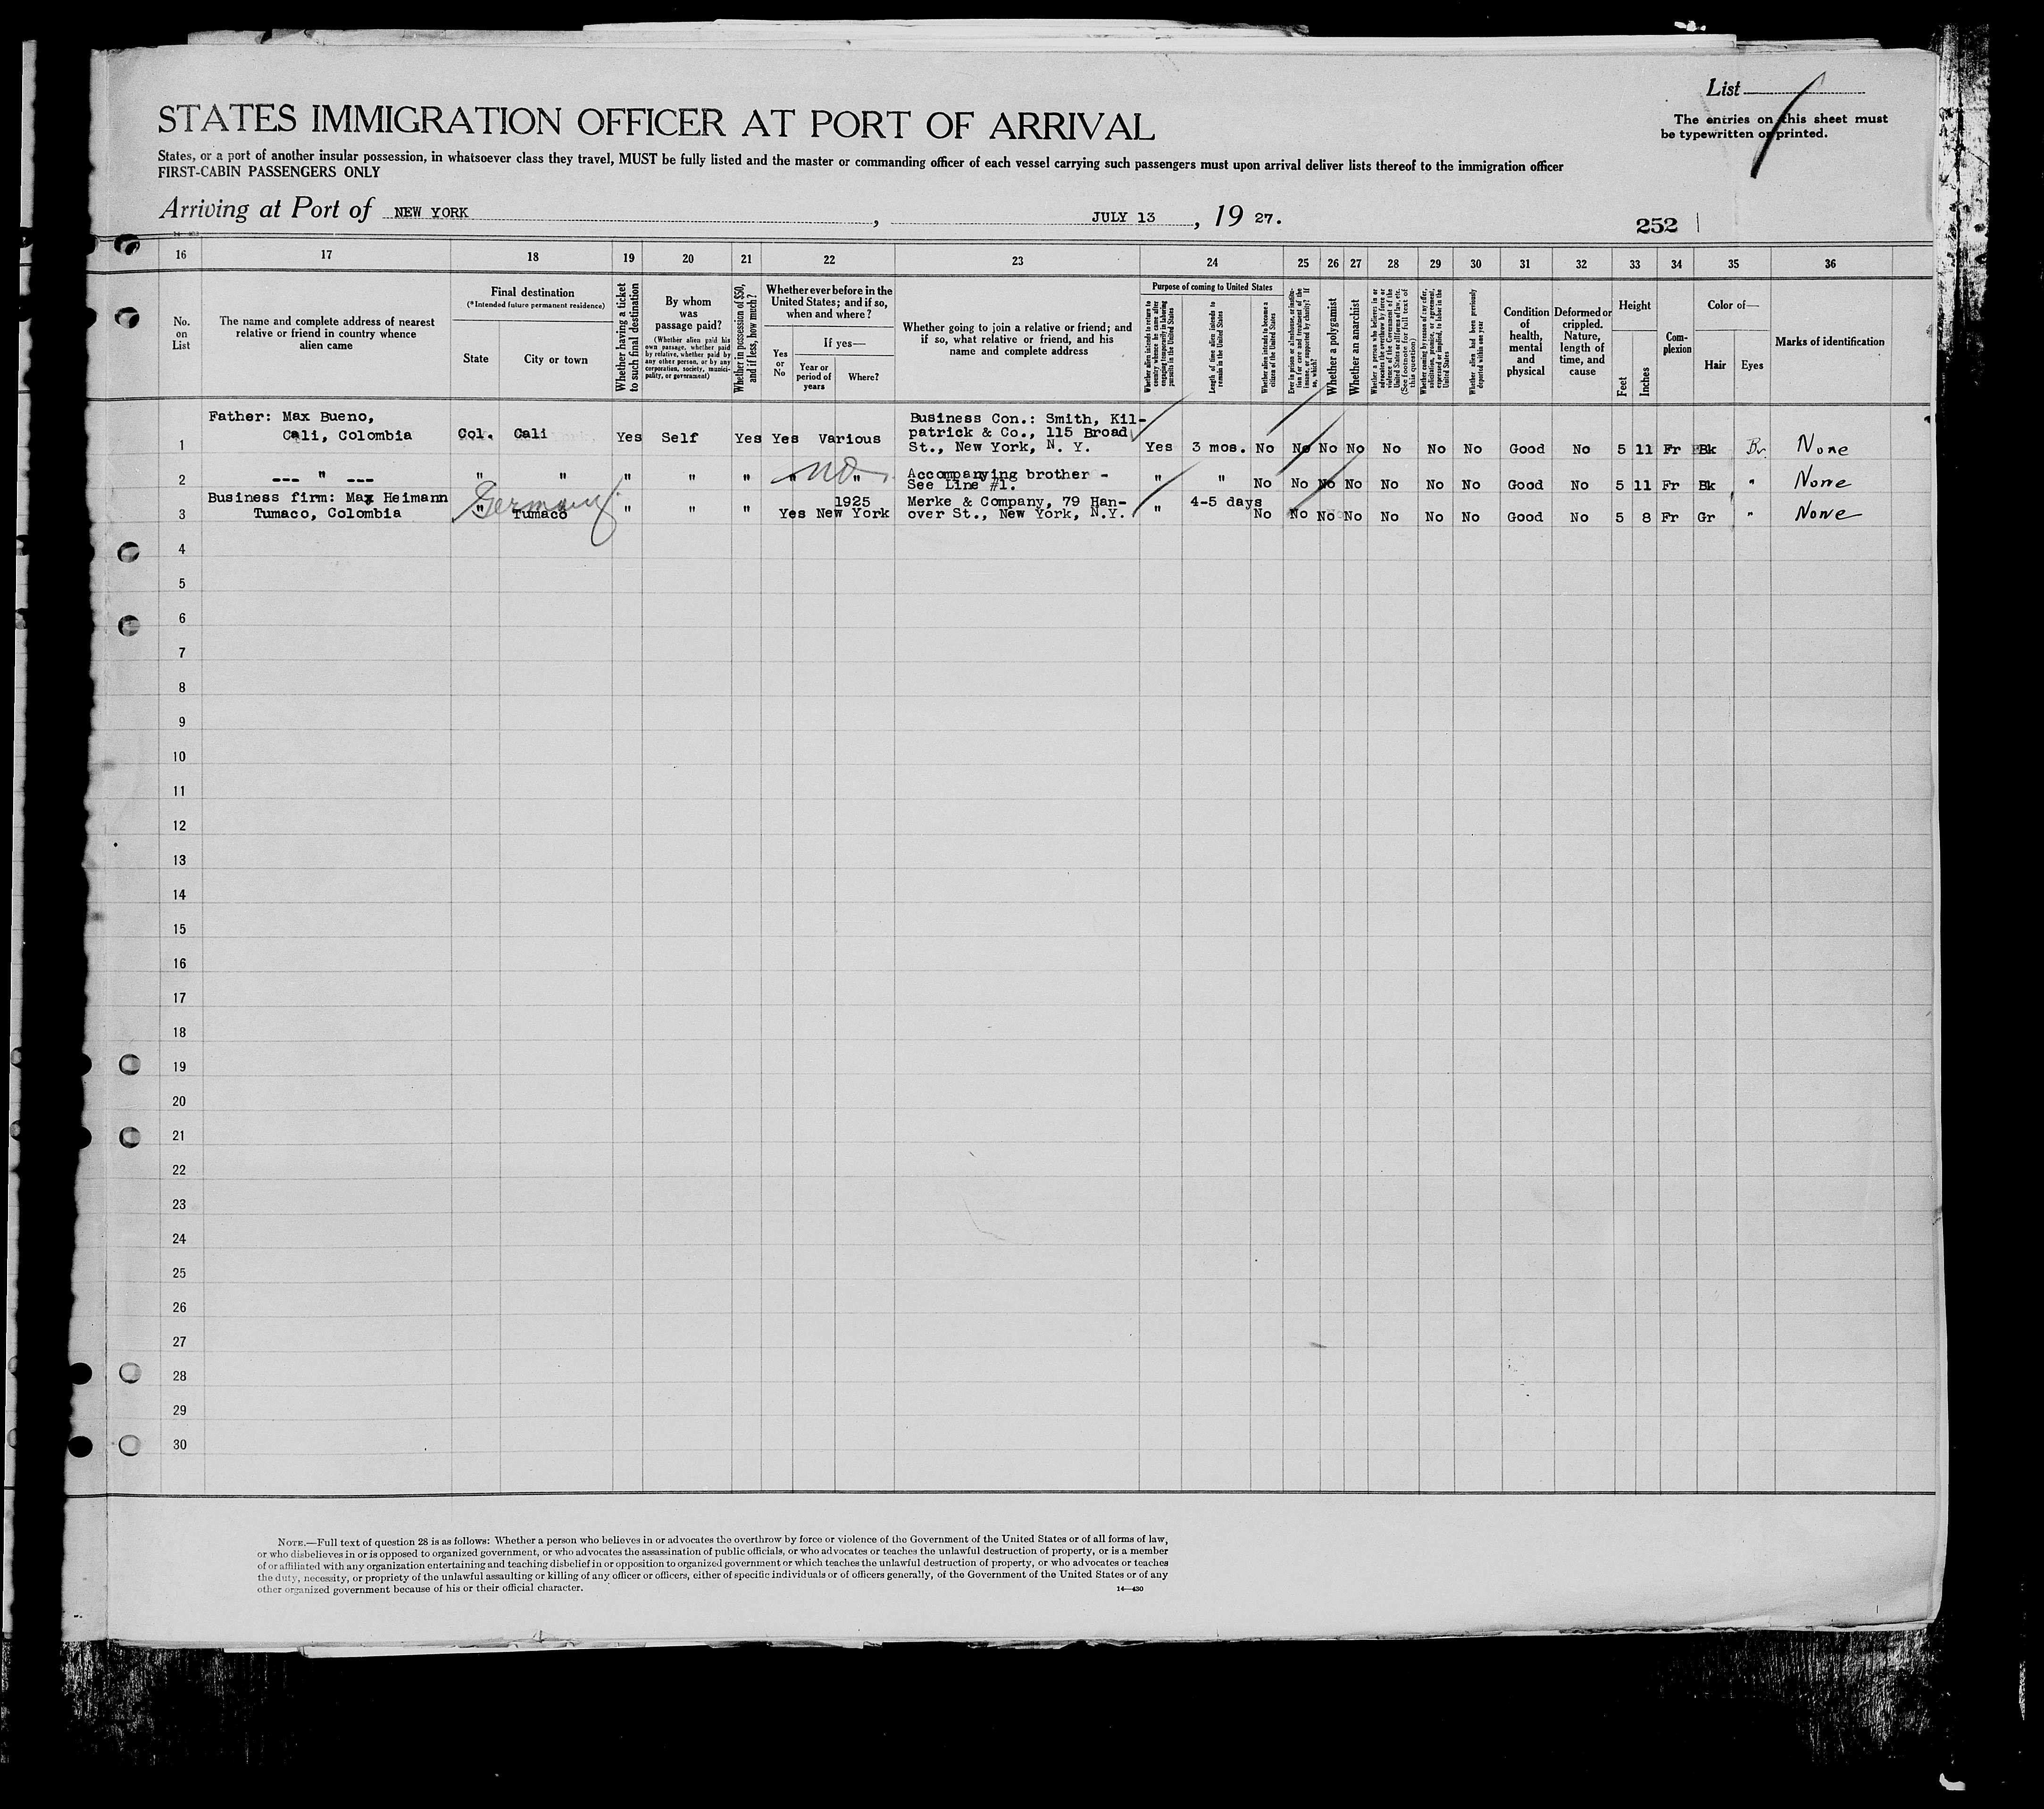 List
The entries on this sheet must
be typewritten or printed.
STATES IMMIGRATION OFFICER AT PORT OF ARRIVAL
States, or a port of another insular possession, in whatsoever class they travel, MUST be fully listed and the master or commanding officer of each vessel carrying such passengers must upon arrival deliver lists thereof to the immigration officer
FIRST-CABIN PASSENGERS ONLY
Arriving at Port of NEW YORK, JULY 13, 19 27.
252
16 17 18 19 20 21 22 23 24 25 26 27 28 29 30 31 32 33 34 35 36
No. on List
The name and complete address of nearest relative or friend in country whence alien came
Final destination
(*Intended future permanent residence)
State
City or town
Whether having a ticket to such final destination
By whom was passage paid?
(Whether alien paid his own passage, whether paid by relative, whether paid by any other person, or by any corporation, society, municipality, or government)
Whether in possession of $50, and if less, how much?
Whether ever before in the United States; and if so, when and where?
Yes or No
If yes—
Year or period of years
Where?
Whether going to join a relative or friend; and if so, what relative or friend, and his name and complete address
Purpose of coming to United States
Whether alien intends to return to country whence he came after engaging temporarily in laboring pursuits in the United States
Length of time alien intends to remain in the United States
Whether alien intends to become a citizen of the United States
Ever in prison or almshouse, or institution for care and treatment of the insane, or supported by charity? If so, which?
Whether a polygamist
Whether an anarchist
Whether a person who believes in or advocates the overthrow by force or violence of the Government of the United States or all forms of law, etc. (See footnote for full text of this question)
Whether coming by reason of any offer, solicitation, promise, or agreement, expressed or implied, to labor in the United States
Whether alien had been previously deported within one year
Condition of health, mental and physical
Deformed or crippled. Nature, length of time, and cause
Height
Feet
Inches
Complexion
Color of—
Hair
Eyes
Marks of identification
1 Father: Max Bueno, Cali, Colombia Col. Cali Yes Self Yes Yes Various Business Con.: Smith, Kilpatrick & Co., 115 Broad St., New York, N. Y. Yes 3 mos. No No No No No No No Good No 5 11 Fr Bk Br. None
2 --- " --- " " " " " " no " Accompanying brother - See Line #1. " " No No No No No No No Good No 5 11 Fr Bk " None
3 Business firm: Max Heimann Tumaco, Colombia " Germany Tumaco " " " Yes 1925 New York Merke & Company, 79 Hanover St., New York, N.Y. " 4-5 days No No No No No No No Good No 5 8 Fr Gr " None
4
5
6
7
8
9
10
11
12
13
14
15
16
17
18
19
20
21
22
23
24
25
26
27
28
29
30
NOTE.—Full text of question 28 is as follows: Whether a person who believes in or advocates the overthrow by force or violence of the Government of the United States or of all forms of law,
or who disbelieves in or is opposed to organized government, or who advocates the assassination of public officials, or who advocates or teaches the unlawful destruction of property, or is a member
of or affiliated with any organization entertaining and teaching disbelief in or opposition to organized government or which teaches the unlawful destruction of property, or who advocates or teaches
the duty, necessity, or propriety of the unlawful assaulting or killing of any officer or officers, either of specific individuals or of officers generally, of the Government of the United States or of any
other organized government because of his or their official character.
14—430